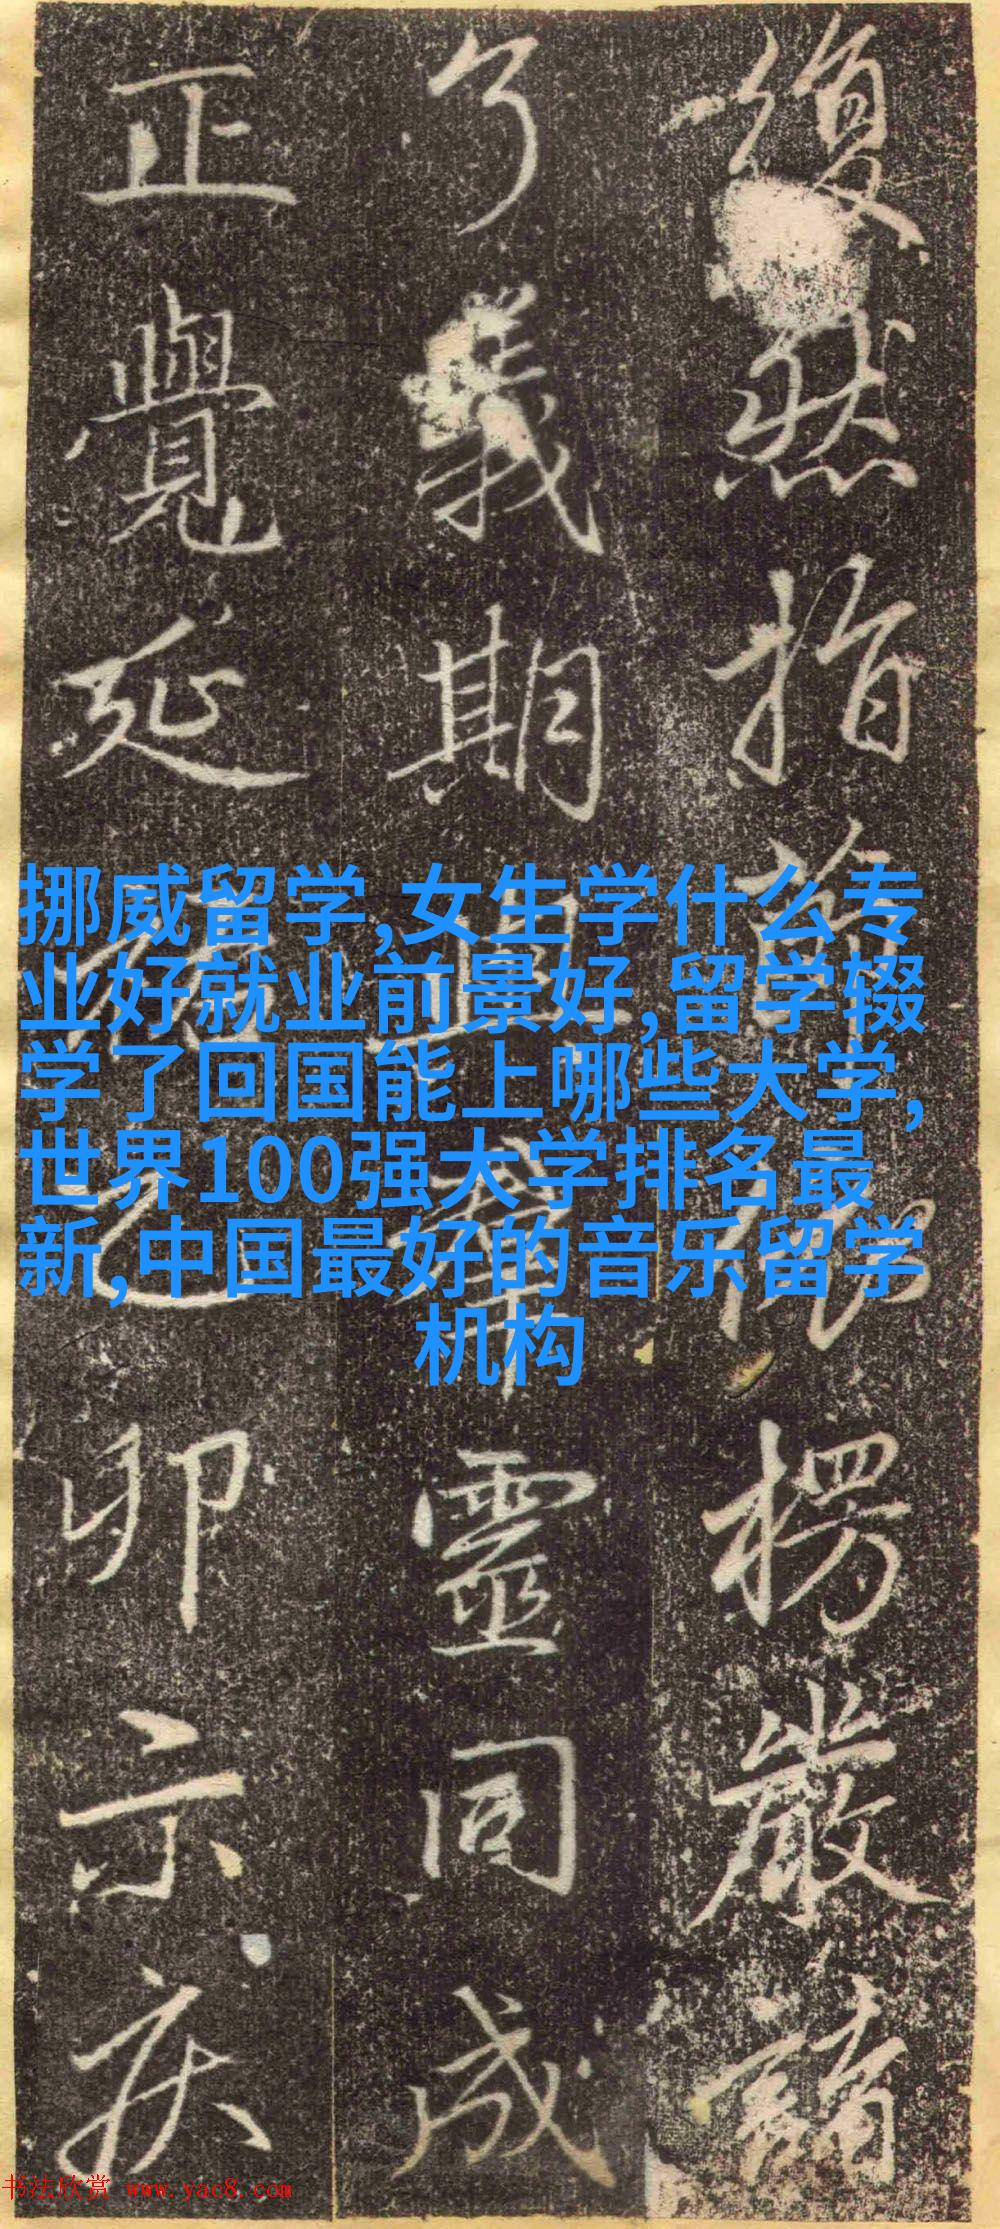 復然指前楞嚴
了義期且羣靈同成
正覺延卯示疾
挪威留学,女生学什么专
业好就业前景好,留学辍
学了回国能上哪些大学,
世界100强大学排名最
新,中国最好的音乐留学
机构
书法欣赏 www.yac8.com